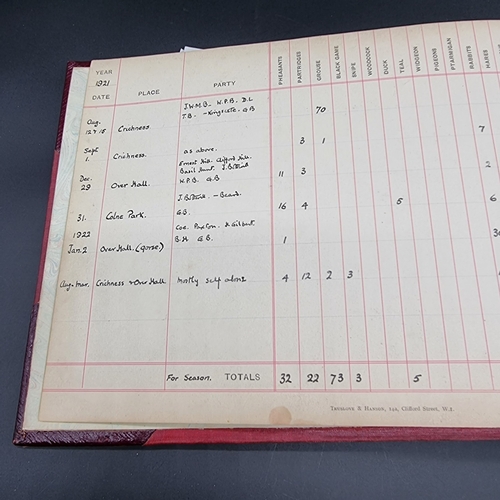 YEAR 1921
DATE PLACE PARTY PHEASANTS PARTRIDGES GROUSE BLACK GAME SNIPE WOODCOCK DUCK TEAL WIDGEON PIGEONS PTARMIGAN RABBITS HARES
J.W.M.B. W.P.B. D.L
Aug. 12 & 15 Crichness T.B. G.B 70
Sept 1. Crichness. as above. 3 1 7
Ernest Clifford
Dec. 29 Over Hall. Basil W.P.B. G.B 11 3 2
31. Colne Park. G.B. 16 4 5 6
1922 Coe. Paxton. & Gilbert.
Jan. 2 Over Hall (gorse) B.H. G.B. 1
Aug-Mar. Crichness & Over Hall mostly self alone 4 12 2 3
For Season. TOTALS 32 22 73 3 5
TRUSLOVE & HANSON, 14A, Clifford Street, W.1.